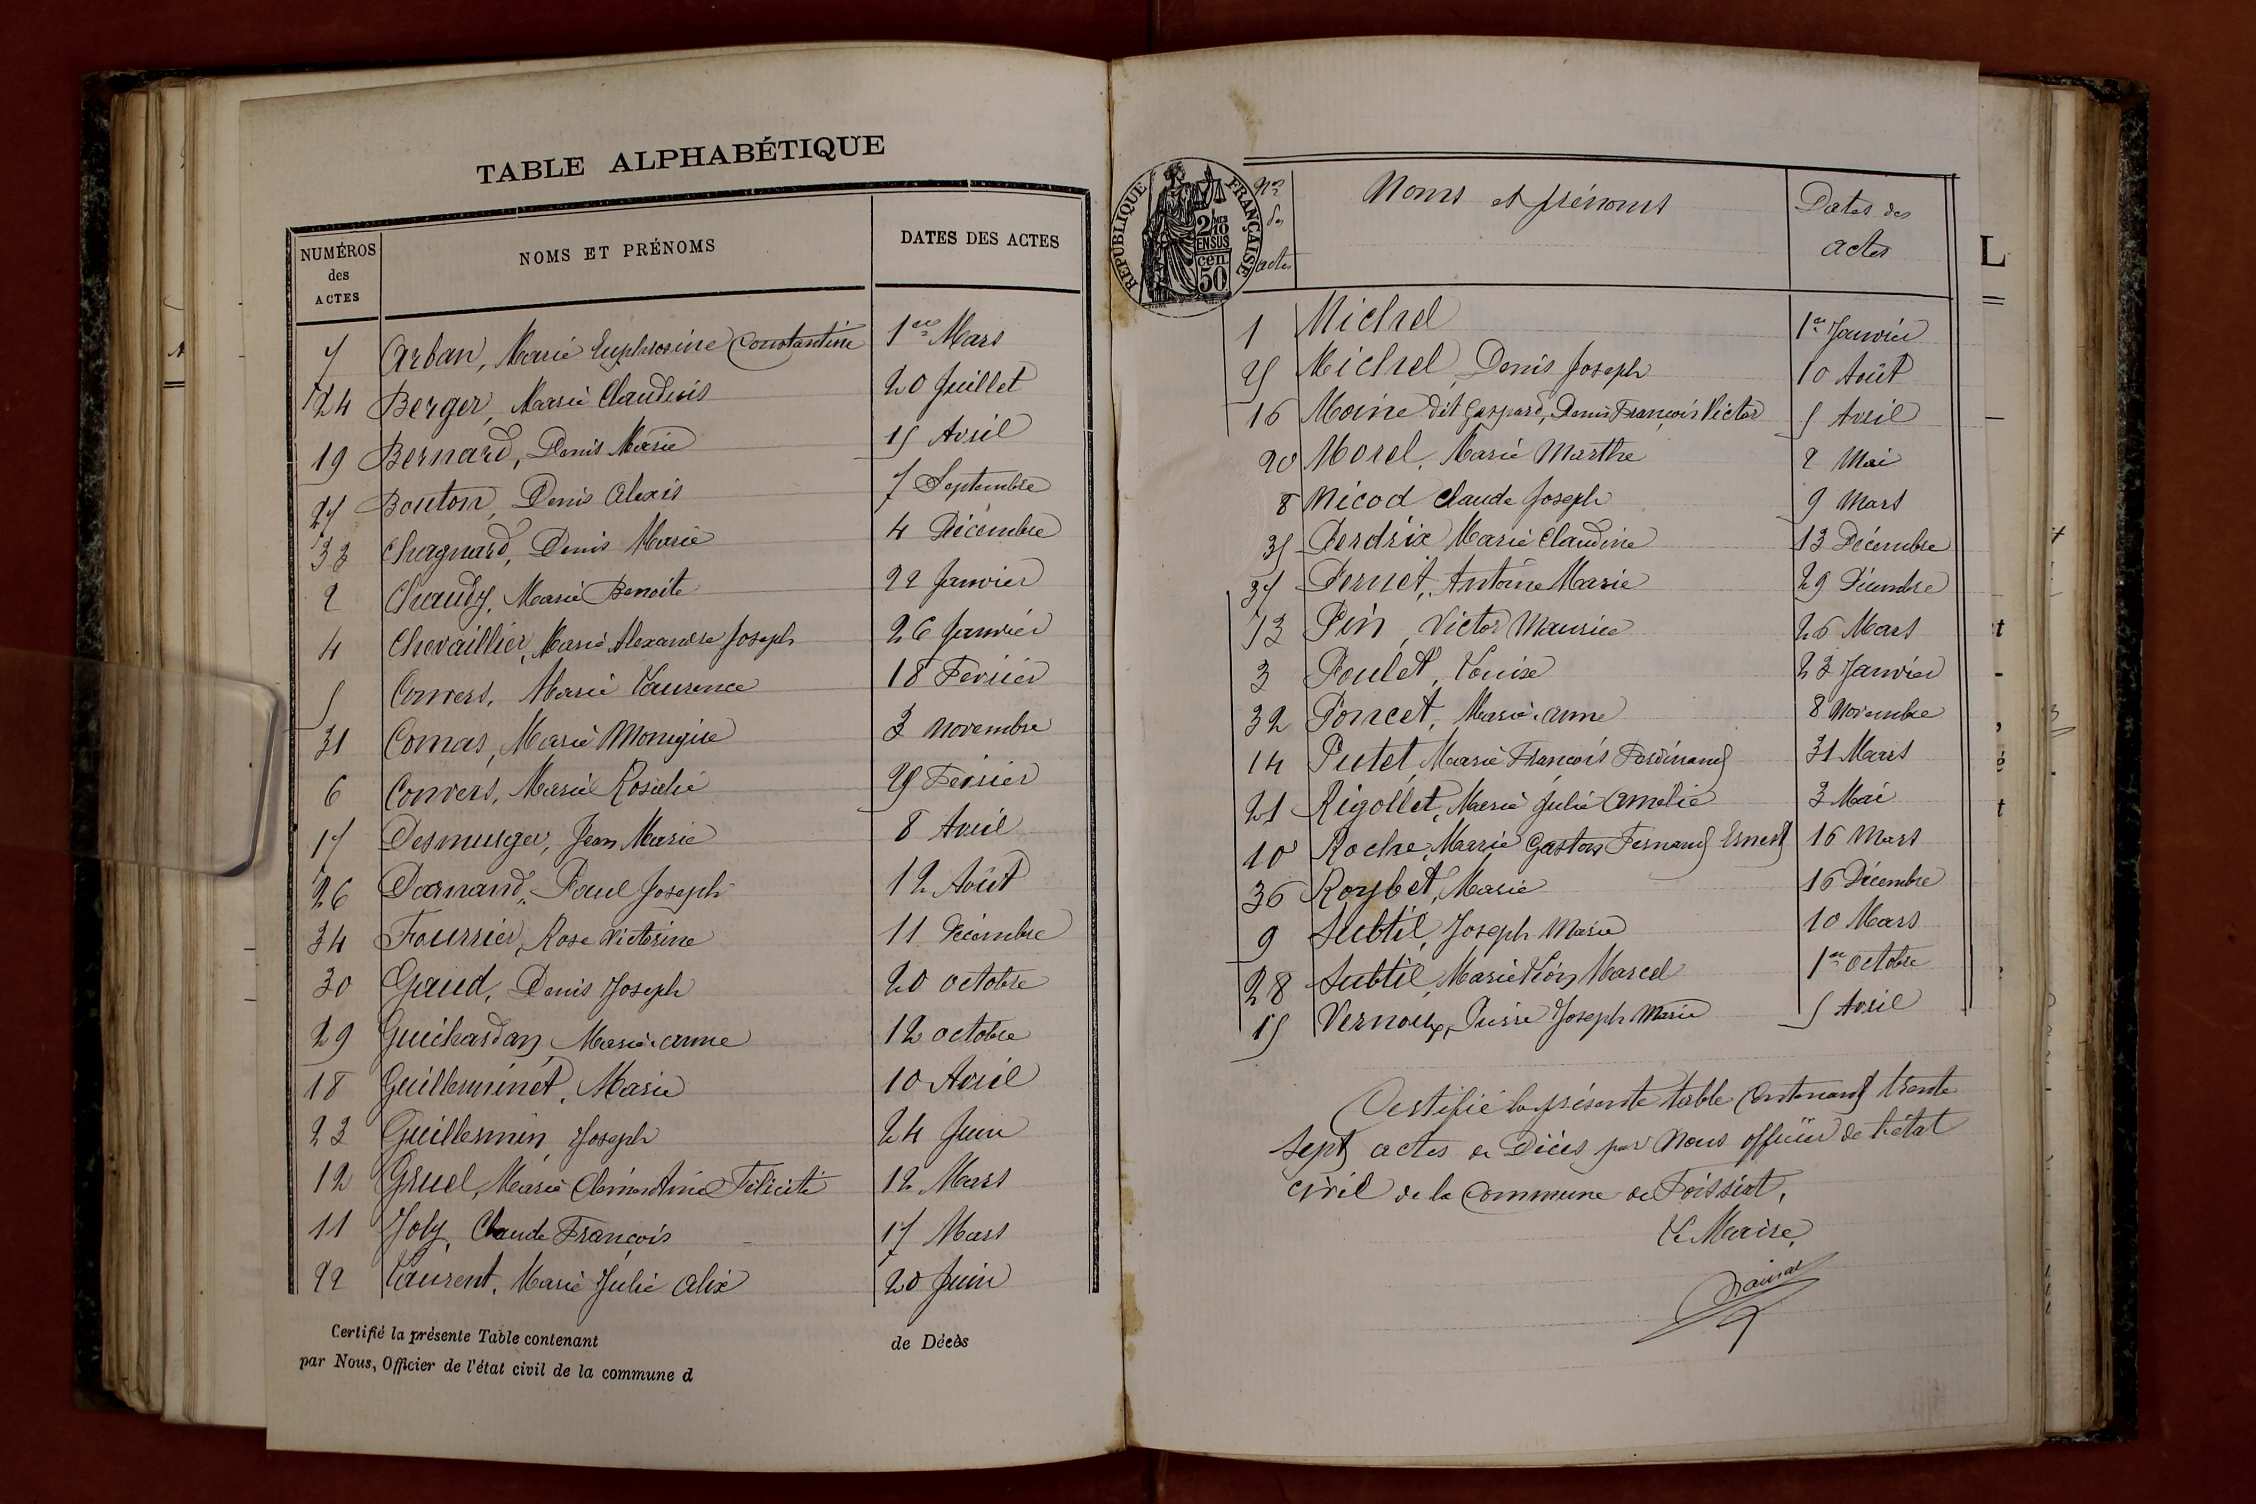 TABLE ALPHABÉTIQUE
NUMÉROS des ACTES NOMS ET PRÉNOMS DATES DES ACTES
7 Arban, Marie Euphrosine Constantine 1er Mars
24 Berger, Marie Claudius 20 Juillet
19 Bernard, Denis Marie 15 Avril
27 Bouton, Denis Alexis 7 Septembre
33 Chagnard, Denis Marie 4 Décembre
2 Chaudy, Marie Benoite 22 Janvier
4 Chevaillier, Marie Alexandre Joseph 26 Janvier
5 Convers, Marie Laurence 18 Février
31 Comas, Marie Monique 3 Novembre
6 Convers, Marie Rosalie 25 Février
17 Desmurger, Jean Marie 8 Avril
26 Darnand, Paul Joseph 12 Août
34 Fourrier, Rose Victorine 11 Décembre
30 Gaud, Denis Joseph 20 octobre
29 Guichardan, Marie-anne 12 octobre
18 Guilleminet, Marie 10 Avril
23 Guillermin, Joseph 24 Juin
12 Gruel, Marie Clémentine Félicité 12 Mars
11 Joly, Claude François 17 Mars
22 Laurent, Marie Julie Alix 20 Juin
Certifié la présente Table contenant de Décès
par Nous, Officier de l'état civil de la commune d
RÉPUBLIQUE FRANÇAISE
2/10 EN SUS
cen.
50
Nos des actes Noms et prénoms Dates des actes
1 Michel 1er Janvier
25 Michel, Denis Joseph 10 Août
16 Moine dit Gaspard, Denis François Victor 5 Avril
20 Morel, Marie Marthe 2 Mai
8 Nicod Claude Joseph 9 Mars
35 Perdrix Marie Claudine 13 Décembre
37 Pernet, Antoine Marie 29 Décembre
13 Pin, Victor Maurice 26 Mars
3 Poulet, Louise 23 Janvier
32 Poncet, Marie-anne 8 Novembre
14 Putet, Marie François Ferdinand 31 Mars
21 Rigollet, Marie Julie Amélie 3 Mai
10 Roche, Marie Gaston Fernand Ernest 16 Mars
36 Roybet, Marie 16 Décembre
9 Subtil, Joseph Marie 10 Mars
28 Subtil, Marie Léon Marcel 1er octobre
15 Vernoux, Pierre Joseph Marie 5 Avril
Certifié la présente table contenant trente
sept actes de Décès par Nous officier de l'état
civil de la Commune de Foissiat.
Le Maire,